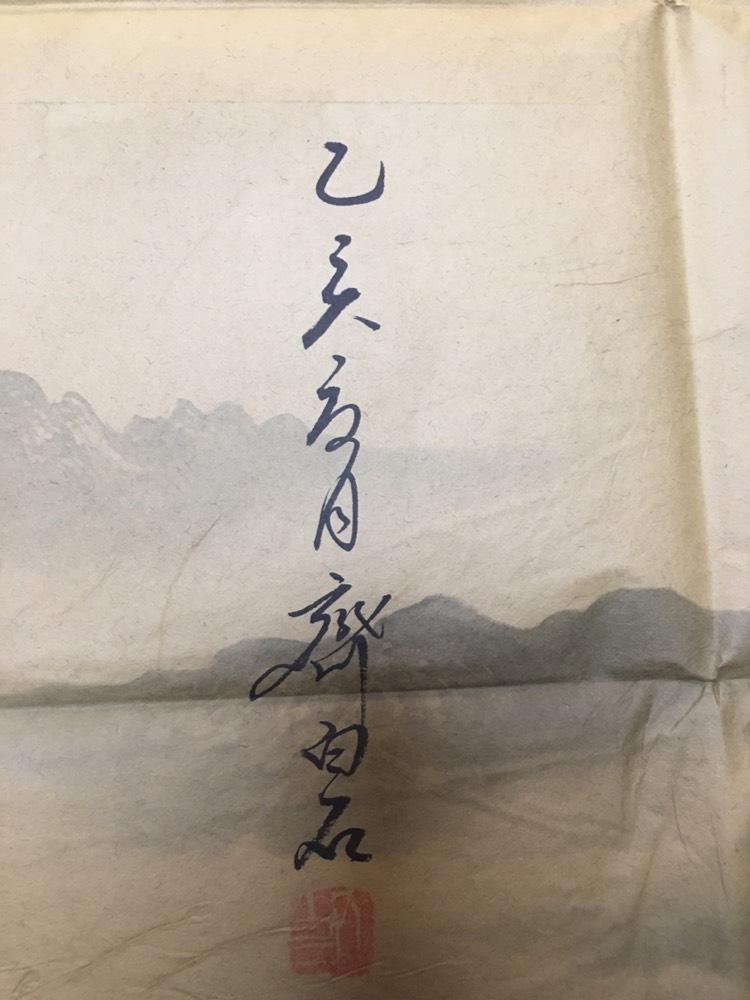 乙亥夏月齊白石